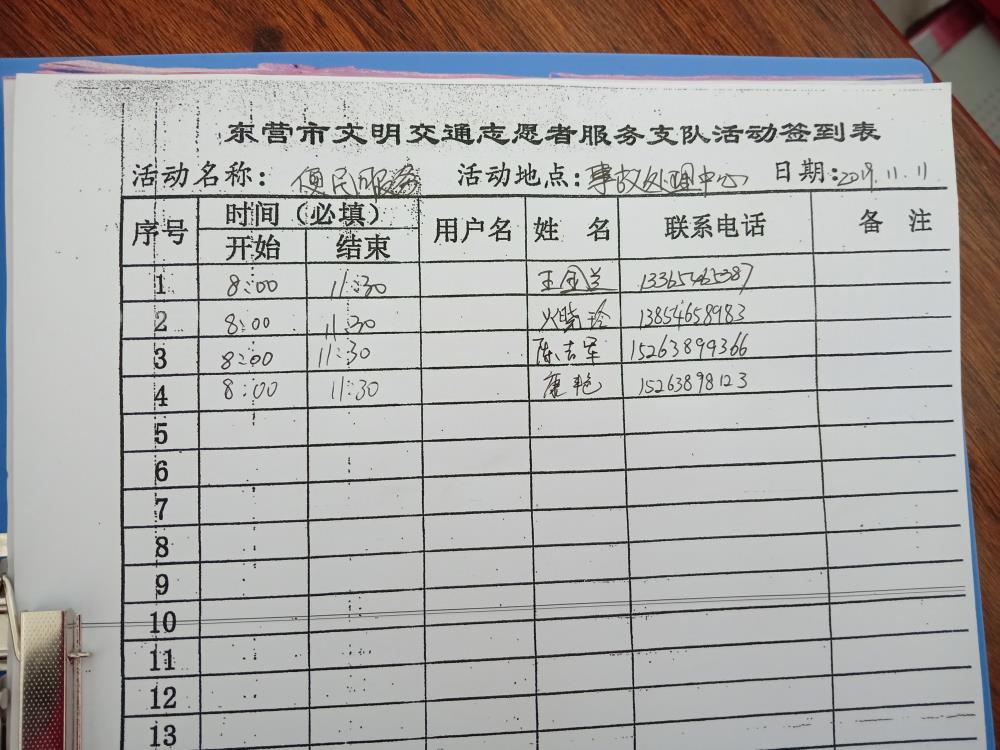 东营市文明交通志愿者服务支队活动签到表
活动名称： 便民服务 活动地点：事故处理中心 日期：2019.11.11
序号 时间（必填） 用户名 姓 名 联系电话 备 注
开始 结束
1 8:00 11:30 王金兰 13365465387
2 8:00 11:30 火晓玲 13854658983
3 8:00 11:30 陈吉军 15263899366
4 8:00 11:30 康艳 15263898123
5
6
7
8
9
10
11
12
13